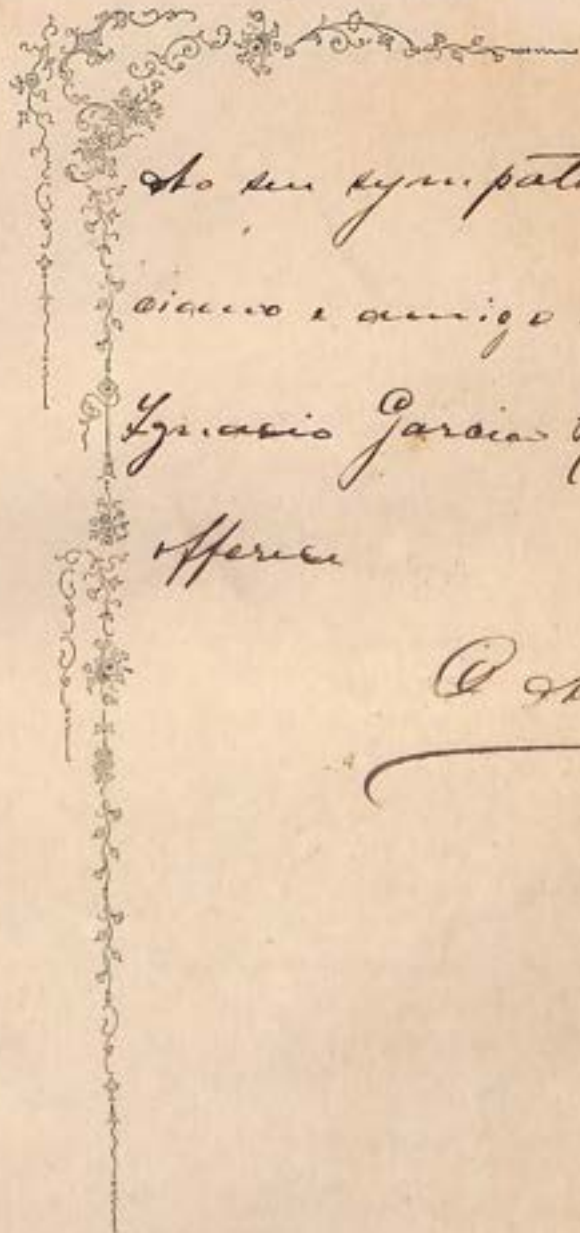 Ao seu sympat
ciano e amigo
Ignacio Garcia
offerece
O A